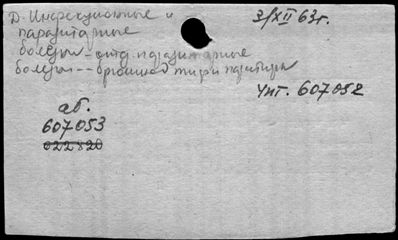 Д. Инфекционные и
паразитарные
болезни – отд. паразитарные
болезни – брюшной тиф и паратифы
3/XII 63г.
Чит. 607052
аб.
607053
022820